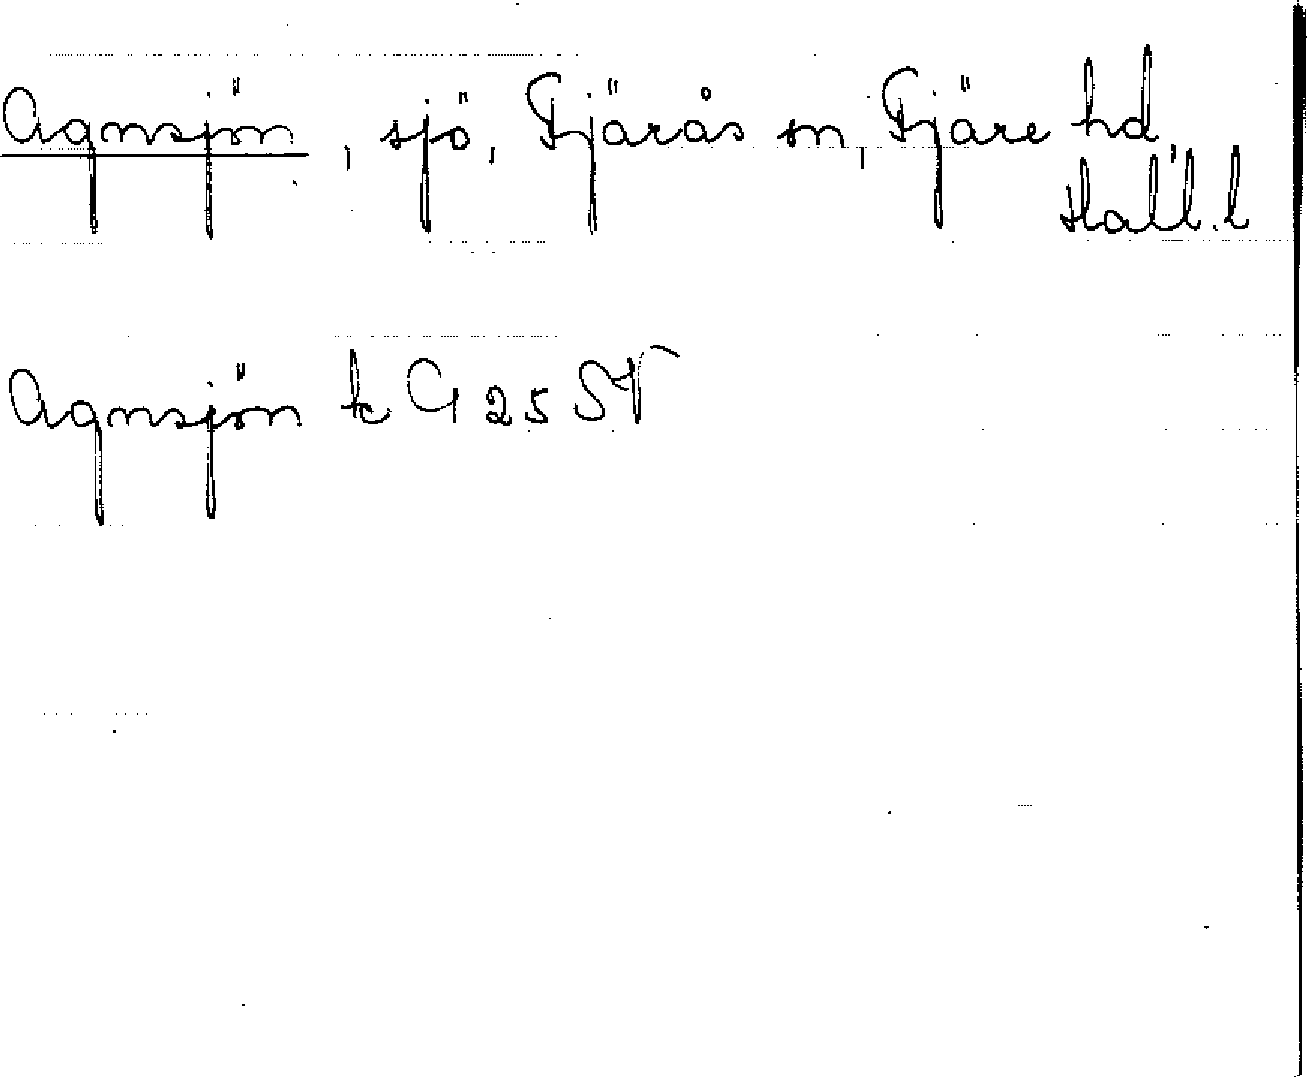 Agnsjön, sjö, Fjärås sn, Fjäre hd,
Hall. l
Agnsjön tc G 25 SV